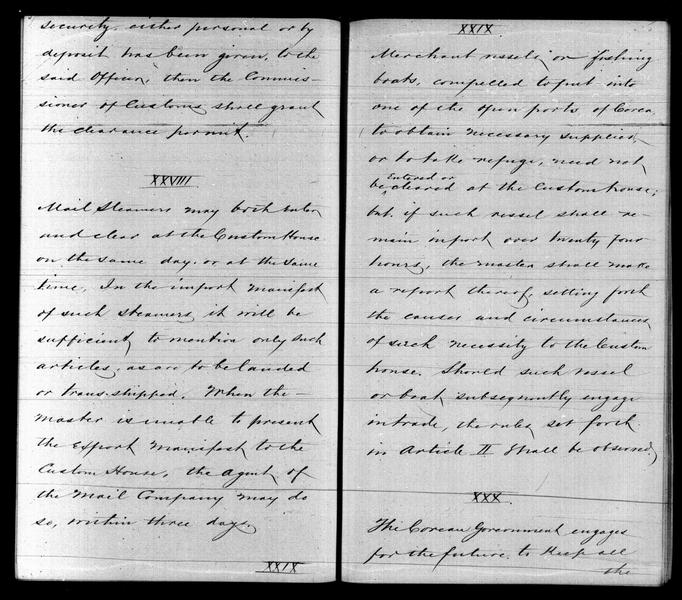 security, either personal or by
deposit has been given, to the
said Officer, then the Commis-
sioner of Customs shall grant
the clearance permit.
XXVIII
Mail Steamers may both enter
and clear at the Custom House
on the same day, or at the same
time. In the import Manifest
of such Steamers, it will be
sufficient, to mention only such
articles, as are to be landed
or trans-shipped. When the
Master is unable to present
the Export Manifest to the
Custom House, the Agent of
the Mail Company may do
so, within three days.
XXIX
XXIX
Merchant vessels, or fishing
boats, compelled to put into
one of the open ports of Corea,
to obtain necessary supplies,
or to take refuge, need not
Entered or
be cleared at the Custom house;
but if such vessel shall re-
main in port over twenty four
hours, the master shall make
a report thereof, setting forth
the causes and circumstances,
of such necessity to the Custom
house. Should such vessel
or boat subsequently engage
in trade, the rules, set forth
in Article II shall be observed,
XXX
The Corean Government engages
for the future, to keep all
the